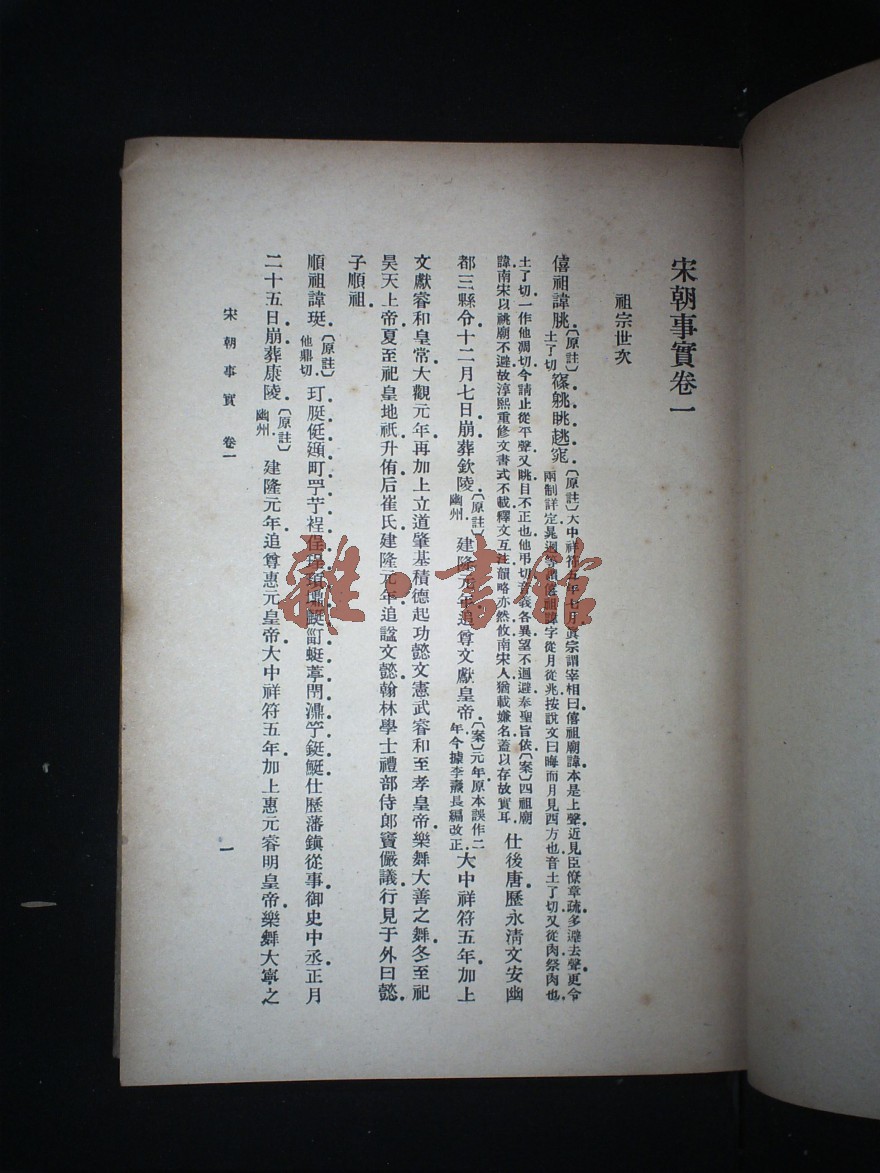 宋朝事實卷一
祖宗世次
僖祖諱朓〔原註〕土了切篠䠷眺趒窕〔原註〕大中祥符五年七月眞宗謂宰相曰僖祖廟諱本是上聲近見臣僚章疏多避去聲更令兩制詳定晁迥等議僖祖諱字從月從兆按說文曰晦而月見西方也音土了切又從肉祭肉也
土了切一作他凋切今請止從平聲又眺目不正也他弔切音義各異望不迴避奉聖旨依〔案〕四祖廟諱南宋以祧廟不避故淳熙重修文書式不載釋文互注韻略亦然攸南宋人猶載嫌名蓋以存故實耳仕後唐歷永淸文安幽
都三縣令十二月七日崩葬欽陵〔原註〕幽州建隆元年追尊文獻皇帝〔案〕元年原本誤作二年今據李燾長編改正大中祥符五年加上
文獻睿和皇帝大觀元年再加上立道肇基積德起功懿文憲武睿和至孝皇帝樂舞大善之舞冬至祀
昊天上帝夏至祀皇地祇升侑后崔氏建隆元年追諡文懿翰林學士禮部侍郎竇儼議行見于外曰懿
子順祖
順祖諱珽〔原註〕他鼎切町仕歷藩鎭從事御史中丞正月
二十五日崩葬康陵〔原註〕幽州建隆元年追尊惠元皇帝大中祥符五年加上惠元睿明皇帝樂舞大寧之
宋朝事實 卷一
一
雜·書館